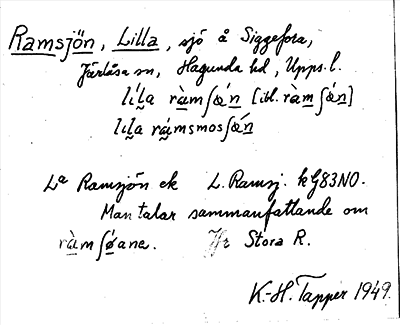 Ramsjön, Lilla, sjö å Siggefora,
Järlåsa sn, Hagunda hd, Upps. l.
líl̰a ràmʃǿn [ibl. ràmʃǿn]
lil̰a rámsmosʃǿn
La Ramsjön ek L. Ramsj. k G83NO.
Man talar sammanfattande om
ràmʃøane. Jfr Stora R.
K.-H. Tapper 1949.